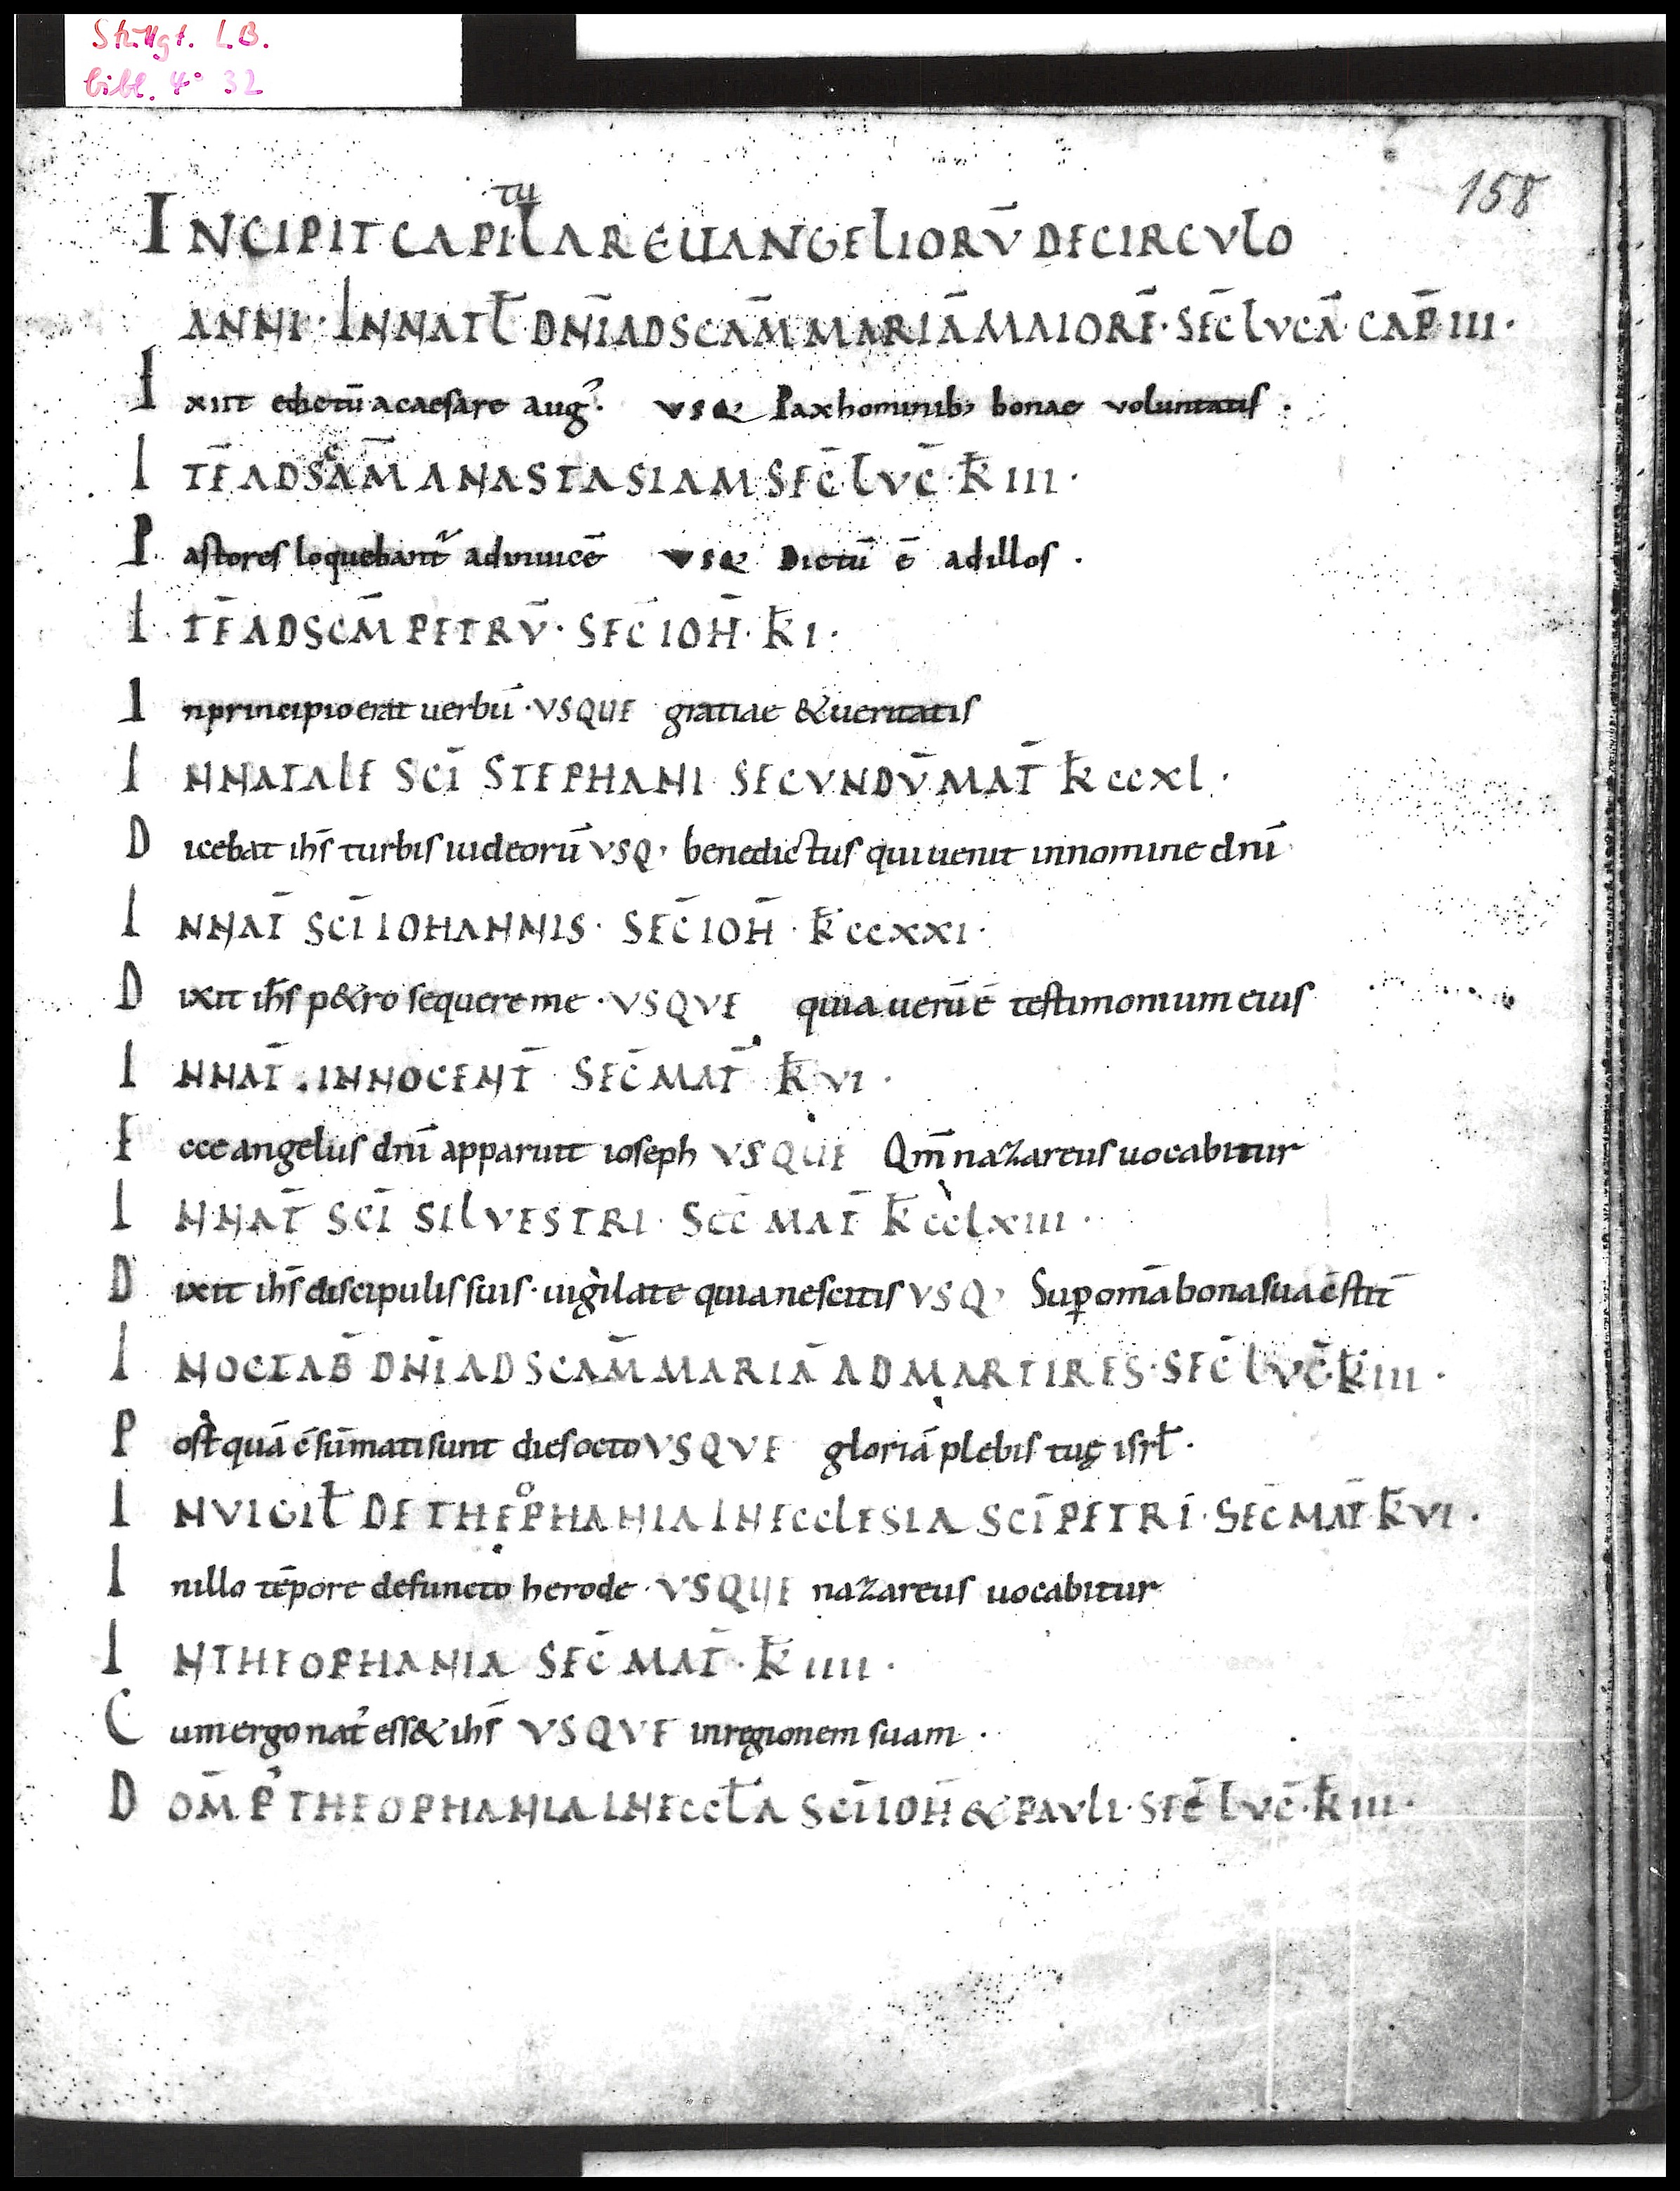 Stuttgt. L.B.
bibl. 4° 32
158
INCIPIT CAPI\tu/LARE EUANGELIORŪ DE CIRCVLO
ANNI · IN NATƚ DN̄I AD SCAM̄ MARIĀ MAIORĒ · SEC̄ LVCĀ CAP̄ III ·
Exiit edictū a caesare aug᾽ · VSQ: Pax hominib; bonae voluntatis ·
ITĒ AD S\c/AM̄ ANASTASIAM SEC̄ LVC̄ · K̄ III ·
Pastores loquebant᾽ adinuicē VSQ: Dictū ē ad illos ·
ITĒ AD SCM̄ PETRV̄ · SEC̄ IOH̄ · K̄ I ·
In principio erat uerbū · VSQUE gratiae & ueritatis
IN NATALE SCĪ STEPHANI SECVNDV̄ MAT̄ K̄ CCXL ·
Dicebat ih̄s turbis iudeorū VSQ᾽ benedictus qui uenit in nomine dnī
IN NAT̄ SCĪ IOHANNIS · SEC̄ IOH̄ · K̄ CCXXI ·
Dixit ih̄s p&ro sequere me · VSQVE quia uerū ē testimonium eius
IN NAT̄ . INNOCENT̄ SEC̄ MAT̄ K̄ VI ·
Ecce angelus dnī apparuit ioseph VSQUE Qm̄ nazareus uocabitur
IN NAT̄ SCĪ SILVESTRI · SEC̄ MAT̄ K̄ CCLXIII ·
Dixit ih̄s discipulis suis · uigilate quia nescitis VSQ᾽ Sup̄ omā bona sua c̄stit̄
IN OCTAB̄ DN̄I AD SCAM̄ MARIĀ AD MARTIRES · SEC̄ LVC̄ · K̄ III ·
Postquā c̄sūmati sunt dies octo VSQVE gloriā plebis tuę isrƚ ·
IN VIGIƚ DE THE\o/PHANIA IN ECCLESIA SCĪ PETRI · SEC̄ MAT̄ K̄ VI ·
In illo tēpore defuncto herode · VSQUE nazareus uocabitur
IN THEOPHANIA SEC̄ MAT̄ · K̄ IIII ·
Cum ergo nat᾽ ess& ih̄s VSQVE in regionem suam ·
DOM̄ P᾽ THEOPHANIA IN ECCƚA SCĪ IOH̄ & PAVLI · SEC̄ LVC̄ · K̄ III ·